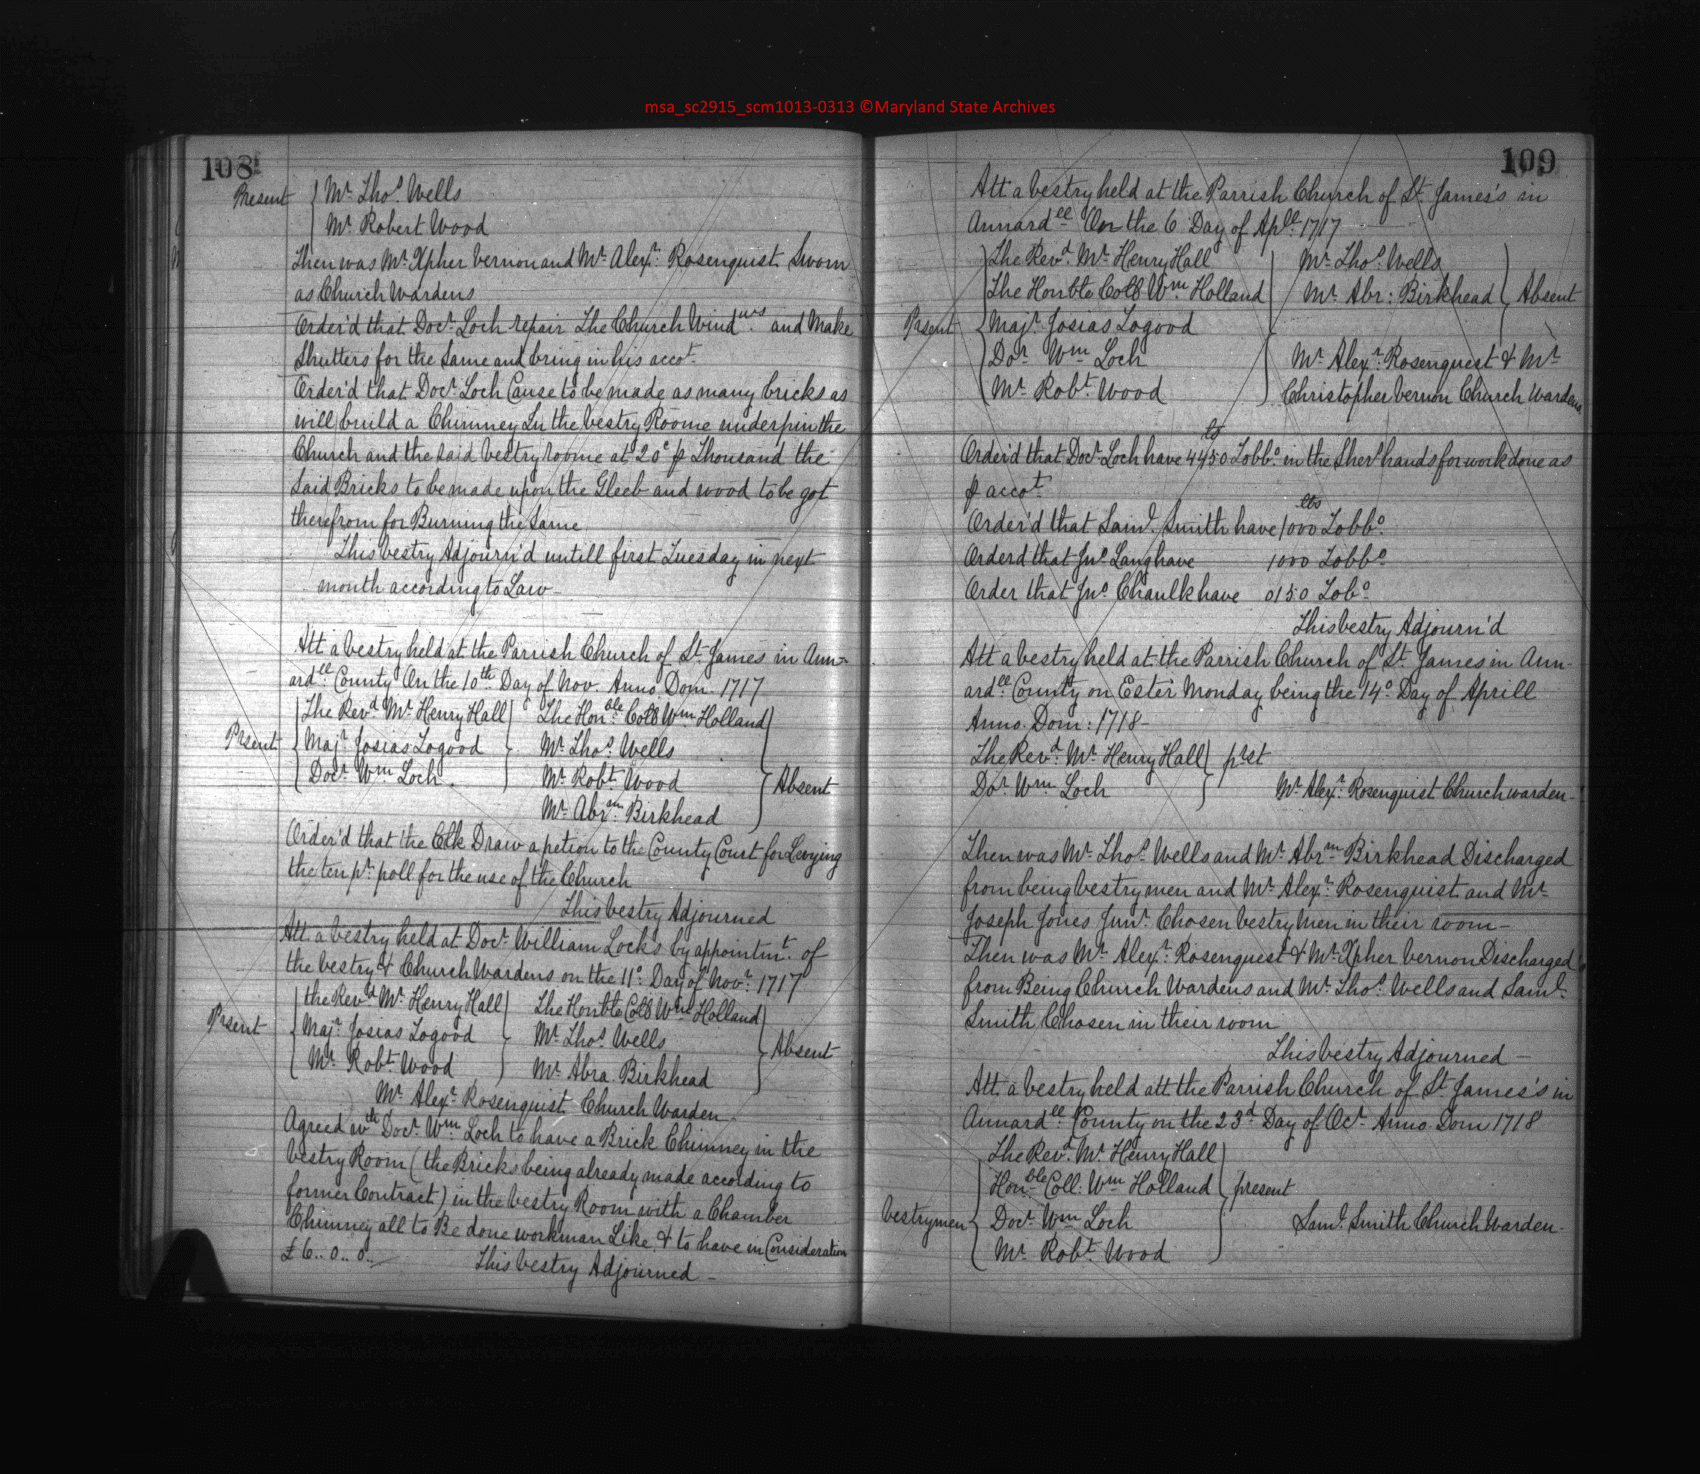 msa_sc2915_scm1013-0313 ©Maryland State Archives
108
Present { Mr. Thos. Wells
Mr. Robert Wood
Then was Mr. Xpher Vernon and Mr. Alexr. Rosenquist Sworn
as Church Wardens
Order'd that Docr. Loch repair The Church Windws. and Make
Shutters for the Same and bring in his accot.
Order'd that Docr. Loch Cause to be made as many bricks as
will build a Chimney In the Vestry Roome underpin the
Church and the said Vestry roome at 20s p Thousand the
Said Bricks to be made upon the Gleeb and wood to be got
therefrom for Burning the Same
This Vestry Adjourn'd untill first Tuesday in next
month according to Law
Att a Vestry held at the Parrish Church of St. James in Ann-
ardell County On the 10th Day of Nov. Anno Dom 1717
The Revd Mr. Henry Hall } The Honble Coll Wm Holland
Prsent { Majr Josias Togood } Mr. Thos. Wells
Docr Wm Loch. } Mr. Robt Wood } Absent
Mr. Abrm Birkhead
Order'd that the Clk Draw a petion to the County Court for Levying
the ten pr. poll for the use of the Church
This Vestry Adjourned
Att a Vestry held at Docr. William Lock's by appointmt. of
the Vestry & Church Wardens on the 11o. Day of Novr. 1717
the Revd Mr. Henry Hall } The Honble Coll Wm Holland
Prsent { Majr Josias Togood } Mr. Thos. Wells
Mr. Robt Wood } Mr. Abra. Birkhead } Absent
Mr. Alexr. Rosenquist Church Warden
Agreed wth Docr. Wm Loch to have a Brick Chimney in the
Vestry Room (the Bricks being already made according to
former Contract) in the Vestry Room with a Chamber
Chimney all to Be done workman Like, & to have in Consideration
£6..0..0.. This Vestry Adjourned -
109
Att a Vestry held at the Parrish Church of St. James's in
Annardell On the 6 Day of Aplll. 1717
The Revd Mr. Henry Hall | Mr. Thos. Wells
The Honble Coll Wm Holland | Mr. Abr: Birkhead } Absent
Prsent { Majr. Josias Togood
Dor. Wm Loch | Mr. Alexr. Rosenquest & Mr.
Mr. Robt. Wood | Christopher Vernon Church Wardens
Order'd that Docr. Loch have 4450 lb Tobbo. in the Sherr hands for work done as
p accot.
Order'd that Saml. Smith have 1000 lbs Tobbo.
Orderd that Jno. Lang have 1000 Tobbo
Order that Jno. Chaulk have 0150 Tobo.
This Vestry Adjourn'd
Att a Vestry held at the Parrish Church of St. James in Ann-
ardell County on Ester Monday being the 14o. Day of Aprill
Anno. Dom: 1718
The Revd. Mr. Henry Hall } prst
Dor. Wm Loch } Mr. Alexr. Rosenquist Church warden-
Then was Mr. Thos. Wells and Mr. Abrm Birkhead Discharged
from being Vestrymen and Mr. Alexr. Rosenquist and Mr.
Joseph Jones Junr. Chosen Vestry Men in their room -
Then was Mr. Alexr. Rosenquest & Mr. Xpher Vernon Discharged
from Being Church Wardens and Mr. Thos. Wells and Saml.
Smith Chosen in their room
This Vestry Adjourned -
Att a Vestry held att the Parrish Church of St. James's in
Annardell County on the 23d Day of Ocr. Anno Dom 1718
The Revd. Mr. Henry Hall
Honble Coll: Wm Holland } present
Vestrymen { Docr. Wm Loch } Saml. Smith Church Warden-
Mr. Robt Wood